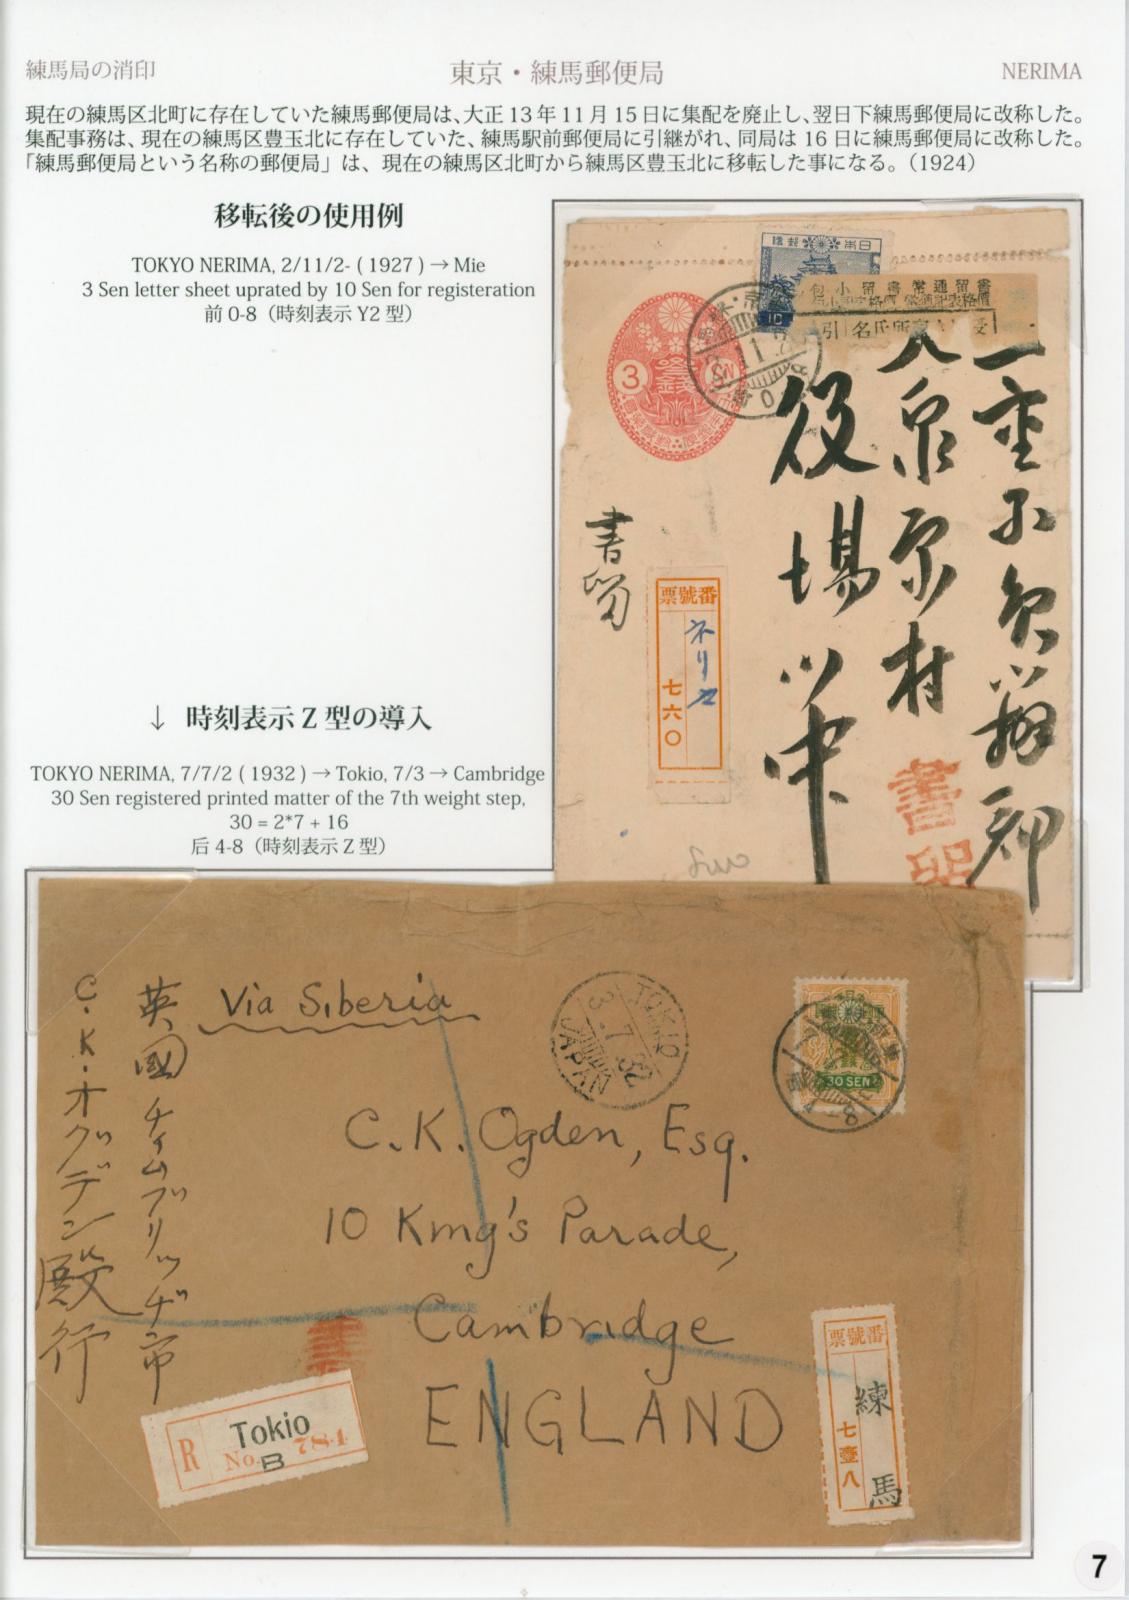 練馬局の消印
東京・練馬郵便局
NERIMA
現在の練馬区北町に存在していた練馬郵便局は、大正 13 年 11 月 15 日に集配を廃止し、翌日下練馬郵便局に改称した。
集配事務は、現在の練馬区豊玉北に存在していた、練馬駅前郵便局に引継がれ、同局は 16 日に練馬郵便局に改称した。
「練馬郵便局という名称の郵便局」は、現在の練馬区北町から練馬区豊玉北に移転した事になる。（1924）
移転後の使用例
TOKYO NERIMA, 2/11/2- ( 1927 ) → Mie
3 Sen letter sheet uprated by 10 Sen for registeration
前 0-8（時刻表示 Y2 型）
10
3
役場御中
書留
番號票
ネリマ
七六〇
書留
↓ 時刻表示 Z 型の導入
TOKYO NERIMA, 7/7/2 ( 1932 ) → Tokio, 7/3 → Cambridge
30 Sen registered printed matter of the 7th weight step,
30 = 2*7 + 16
后 4-8（時刻表示 Z 型）
Via Siberia
TOKIO
3.7.32
JAPAN
30 SEN
英國
C・K・オグデン殿行
C. K. Ogden, Esq.
10 King's Parade,
Cambridge
ENGLAND
R
Tokio
No. 784
B
番號票
練馬
七壹八
7